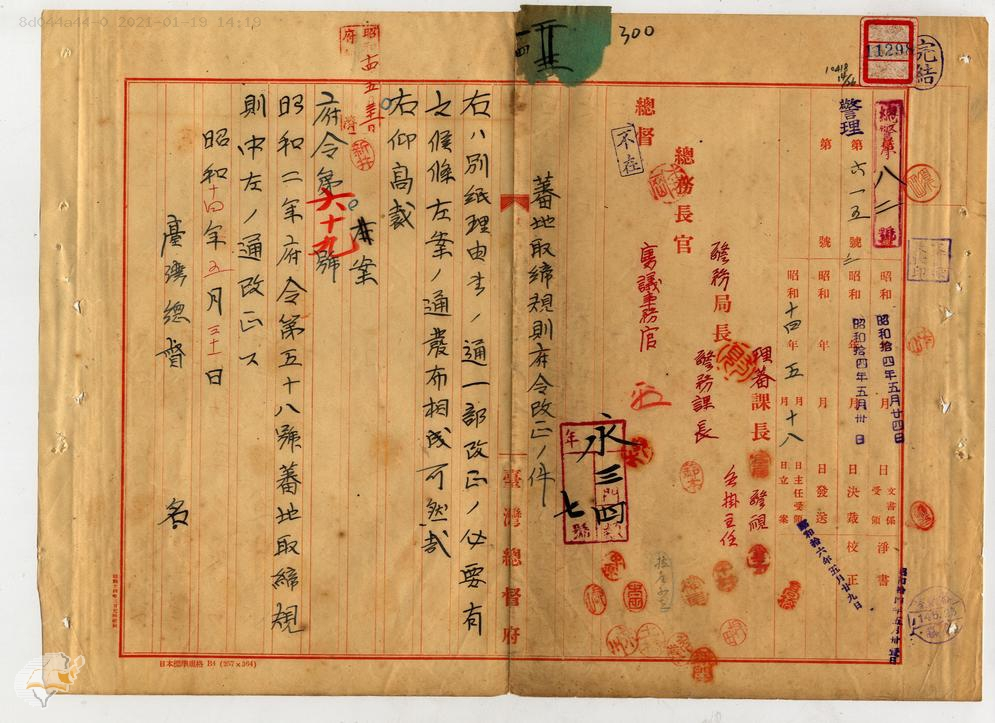 8d044a44-0 2021-01-19 14:19
300
11298
完結
總警第八二號
警理
第六一五號
第 號
昭和拾四年五月廿四日
昭和 年 月 日 文書係受領 淨書
昭和拾四年五月卅日
昭和 年 月 日決裁 校正
昭和 年 月 日發送
昭和十四年五月十八日立案 主任受領
昭和拾六年五月廿九日
理蕃課長
警視
警務局長
警務課長
主任
總務長官
審議事務官
總督
不在
永
年
三門
四
七號
蕃地取締規則府令改正ノ件
右ハ別紙理由書ノ通一部改正ノ必要有
之候條左案ノ通發布相成可然哉
右仰高裁
本案
府令第六十九號
昭和二年府令第五十八號蕃地取締規
則中左ノ通改正ス
昭和十四年五月三十一日
臺灣總督 名
臺灣總督府
新井
日本標準規格 B4 (257×364)